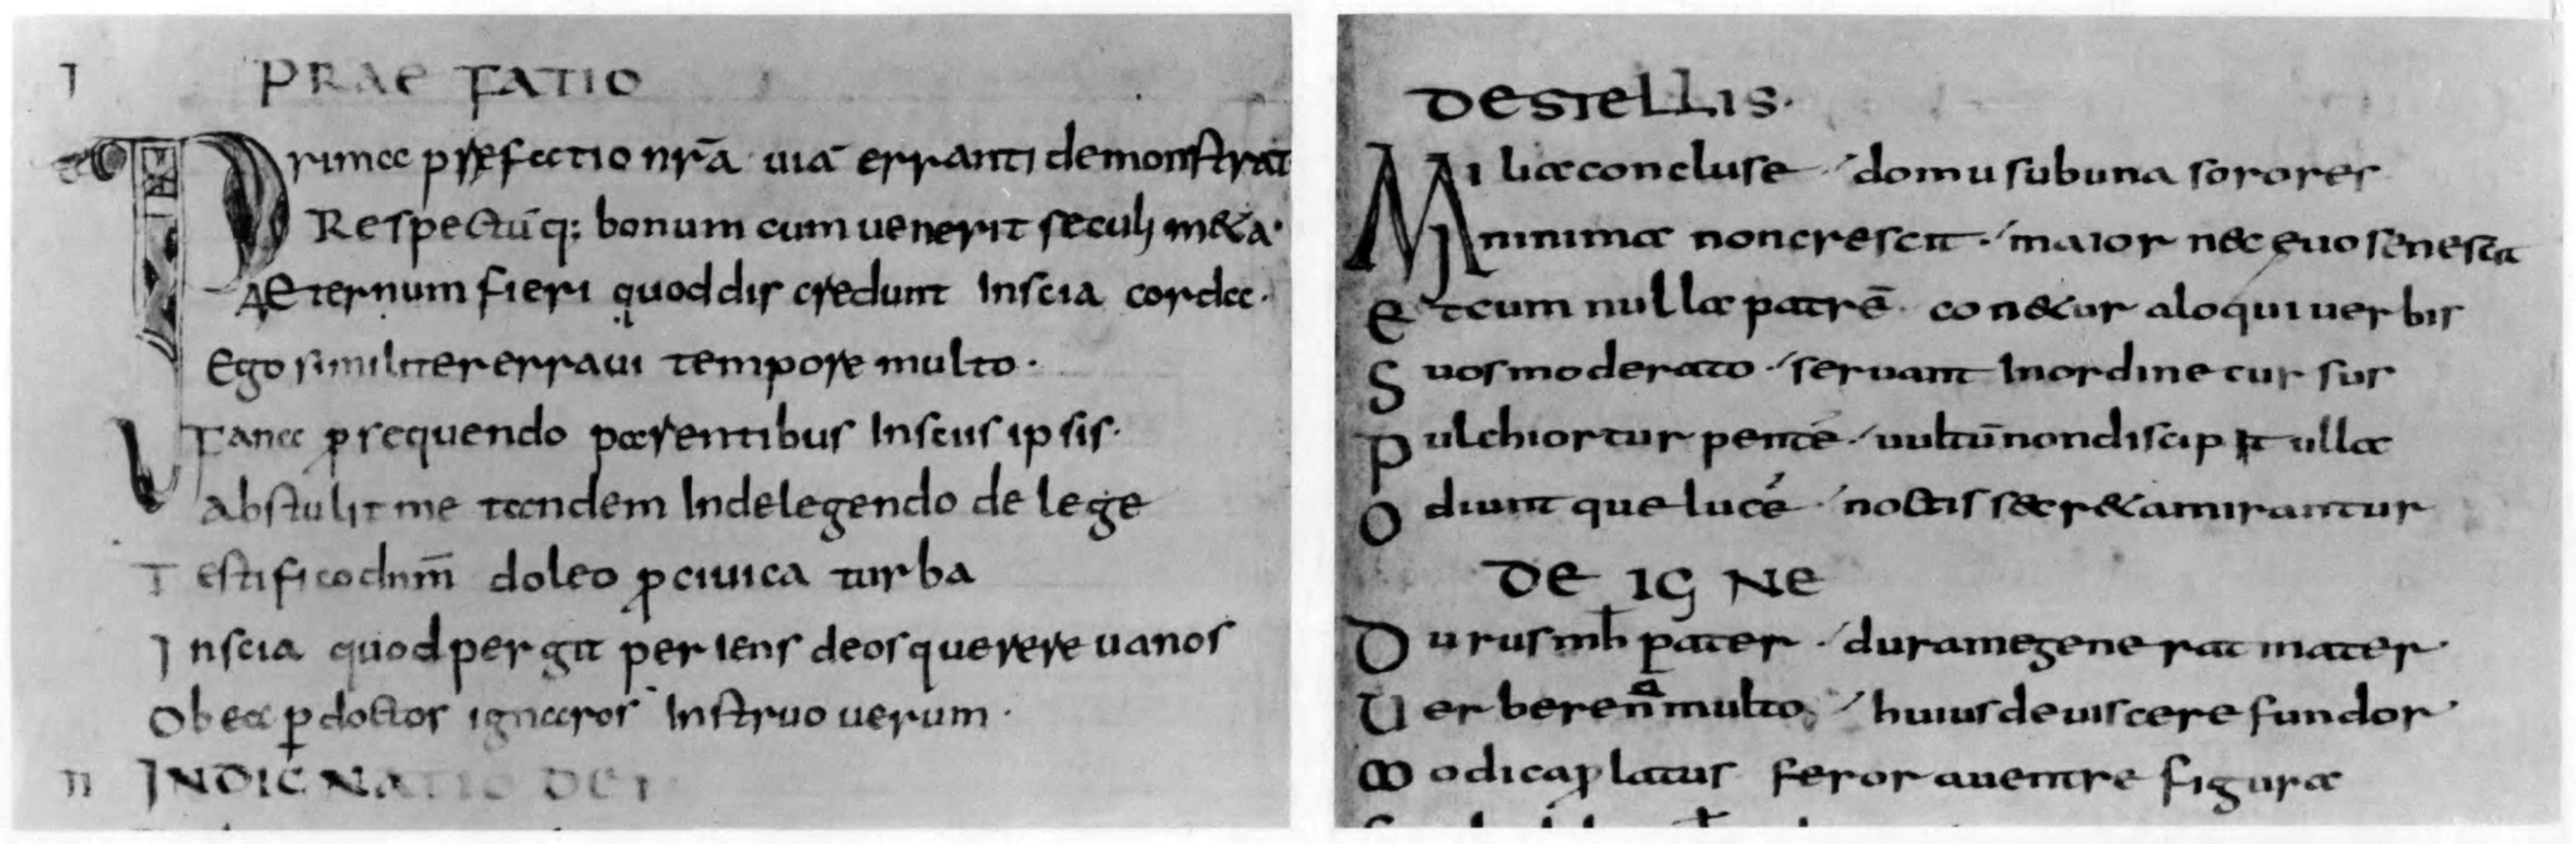 I PRAEFATIO
Prima p̄refatio nr̄a uiā erranti demonstrat
Respectūq; bonum cum uenerit seculi meta·
Aeternum fieri quod dir credunt Inscia corda·
Ego similiter erraui tempore multo·
Tana prequendo parentibus Inscius ipsis·
Abstulit me tandem Inde legendo de lege
Testificor dnm̄ doleo p ciuica turba
Inscia quod pergit periens deos querere uanos
Ob ea p doctos ignaros Instruo uerum·
II INDIGNATIO DEI
DESTELLIS·
Milia concluse domus sub una sorores
Minima non crescit· maior nec euo senescit
Et cum nulla patrē· conetur aloqui uerbis
Suos moderato· seruant Inordine cursus
Pulchior turpentē· uultū non discipit ulla
Odiunt que lucē· noctis secreta mirantur
DE IGNE
Durus mh̄ pater· dura me generat mater·
Uerbere nā multo· huius de uiscere fundor·
Modica p̄latus feror a uentre figura